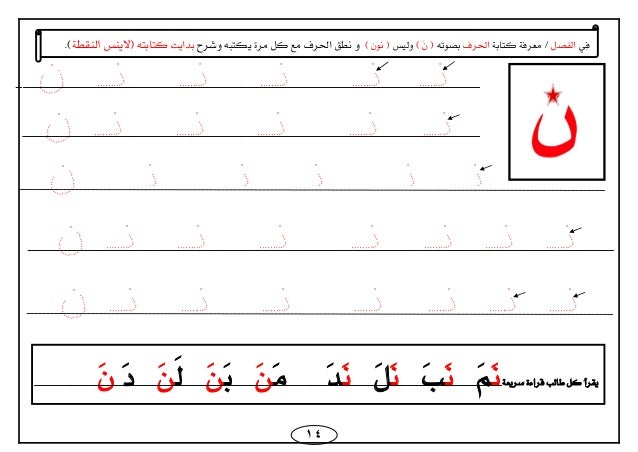 في الفصل / معرفة كتابة الحرف بصوته ( نَ ) وليس ( نون ) و نطق الحرف مع كل مرة يكتبه وشرح بدايت كتابته (لاينس النقطة).
ن
نـ نـ نـ نـ نـ ن
نـ نـ نـ نـ نـ ن
نـ نـ نـ نـ نـ ن
نـ نـ نـ نـ نـ نـ نـ ن
نـ نـ نـ نـ نـ نـ نـ ن
يقرأ كل طالب قراءة سريعة نَمَ نَبَ نَلَ نَدَ مَنَ بَنَ لَنَ دَنَ
١٤